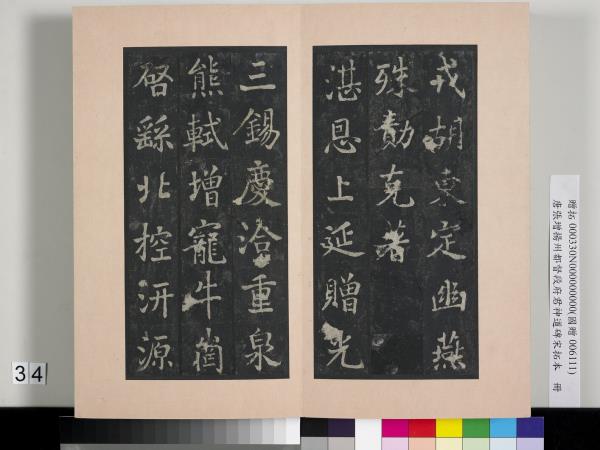 戎胡東定幽燕
殊勣克著
湛恩上延贈光
三錫慶洽重泉
熊軾增寵牛崗
啓繇北控汧源
贈拓 000330N000000000(國贈 006111)
唐張增揚州都督段府君神道碑宋拓本 冊
34